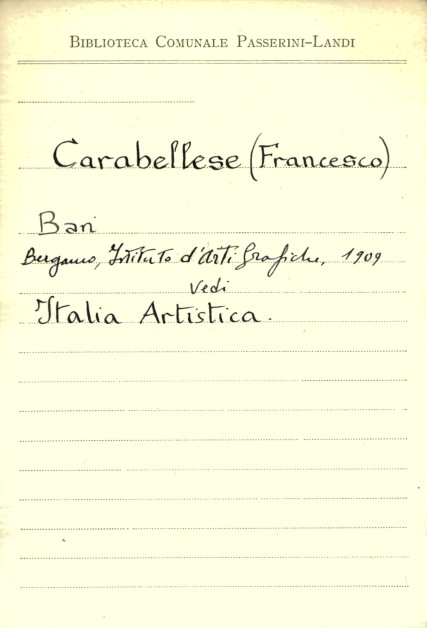 Biblioteca Comunale Passerini-Landi
Carabellese (Francesco)
Bari
Bergamo, Istituto d'Arti Grafiche, 1909
Vedi
Italia Artistica.